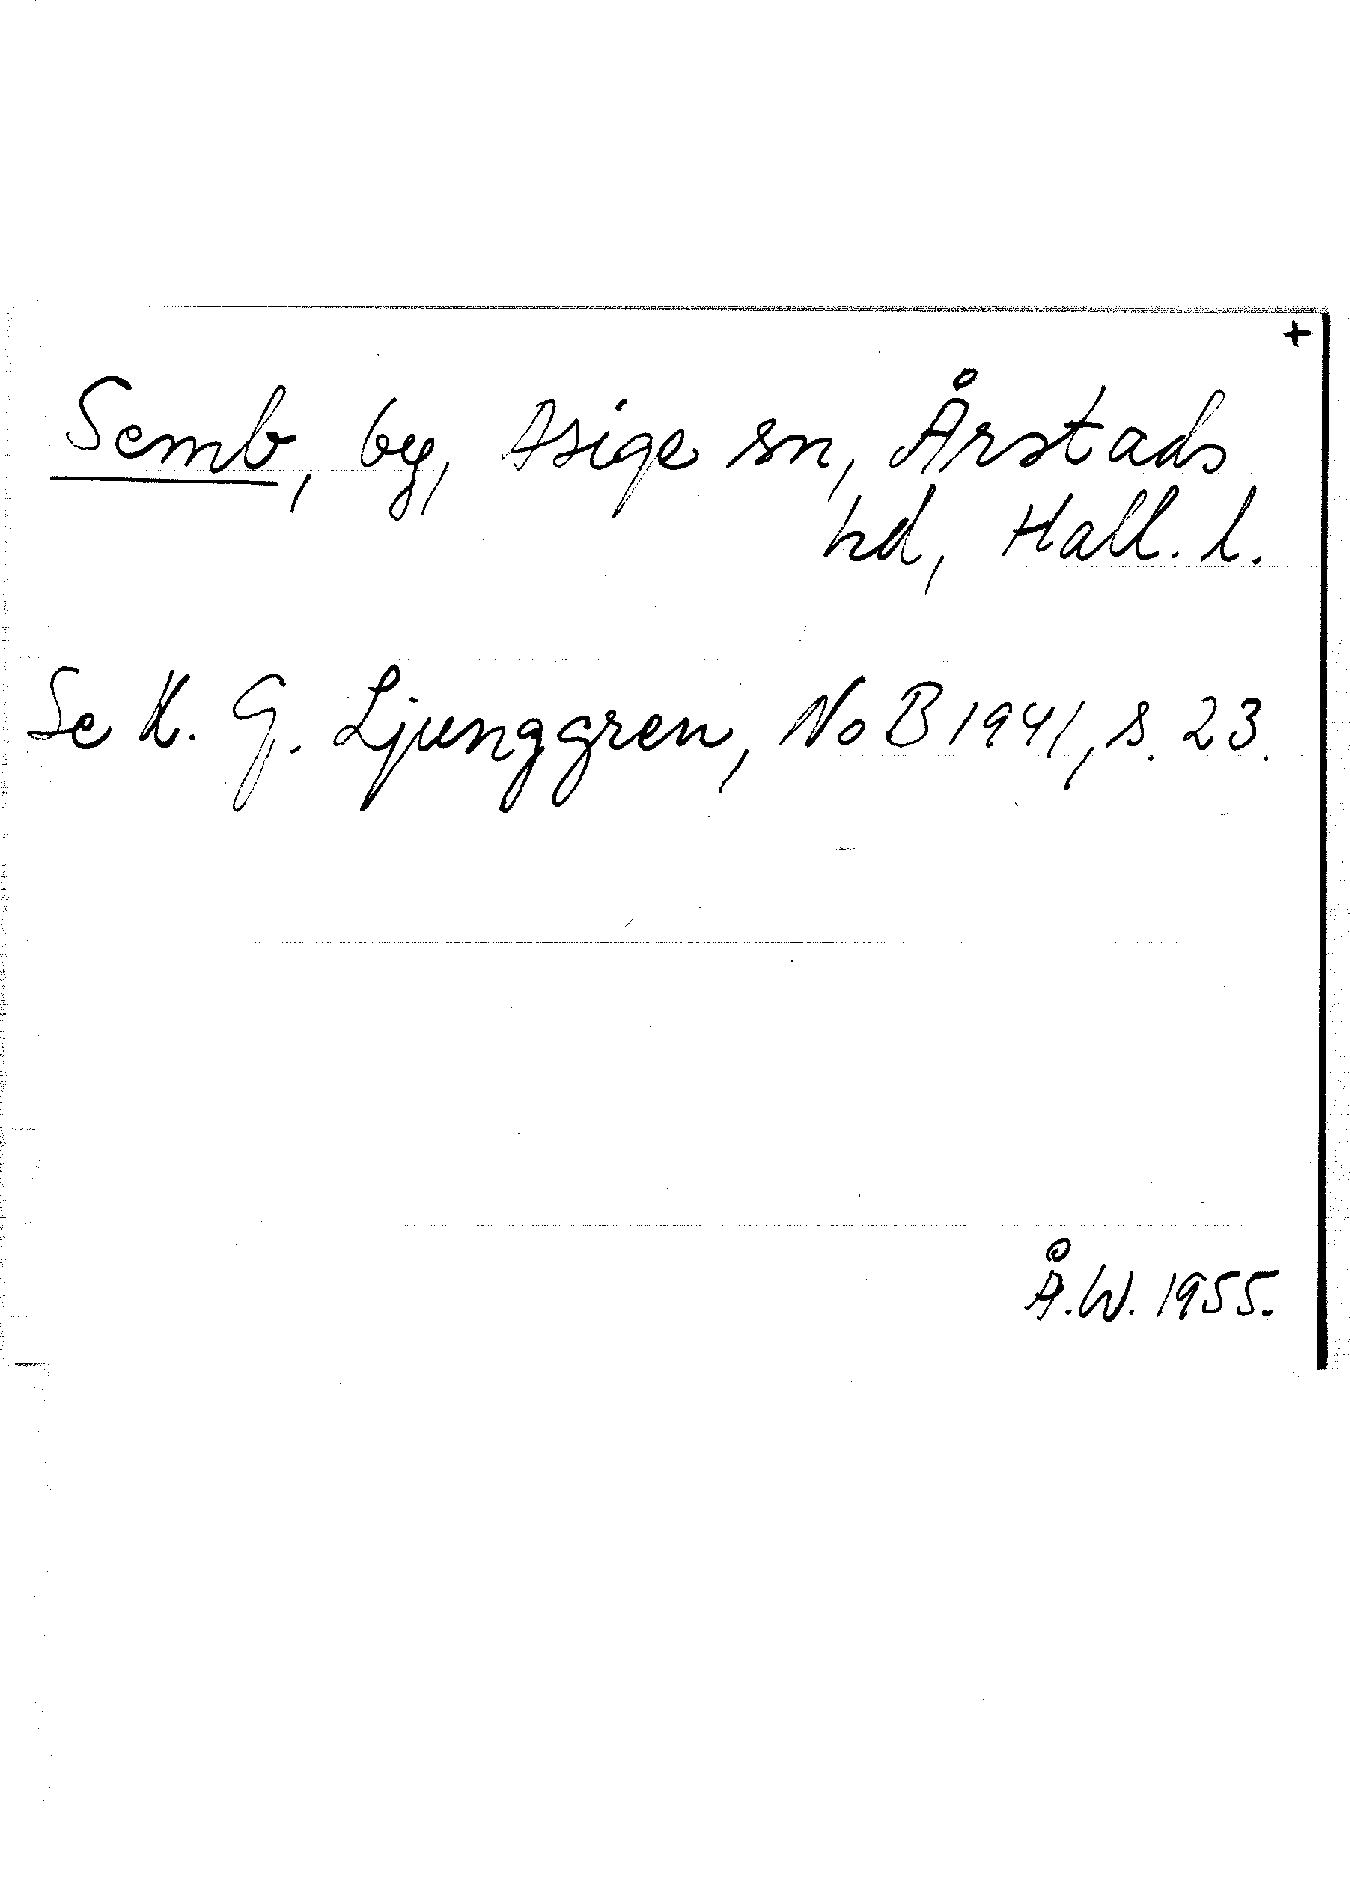 +
Semb, by, Asige sn, Årstads
hd, Hall. l.
Se K. G. Ljunggren, NoB 1941, s. 23.
Å.W. 1955.